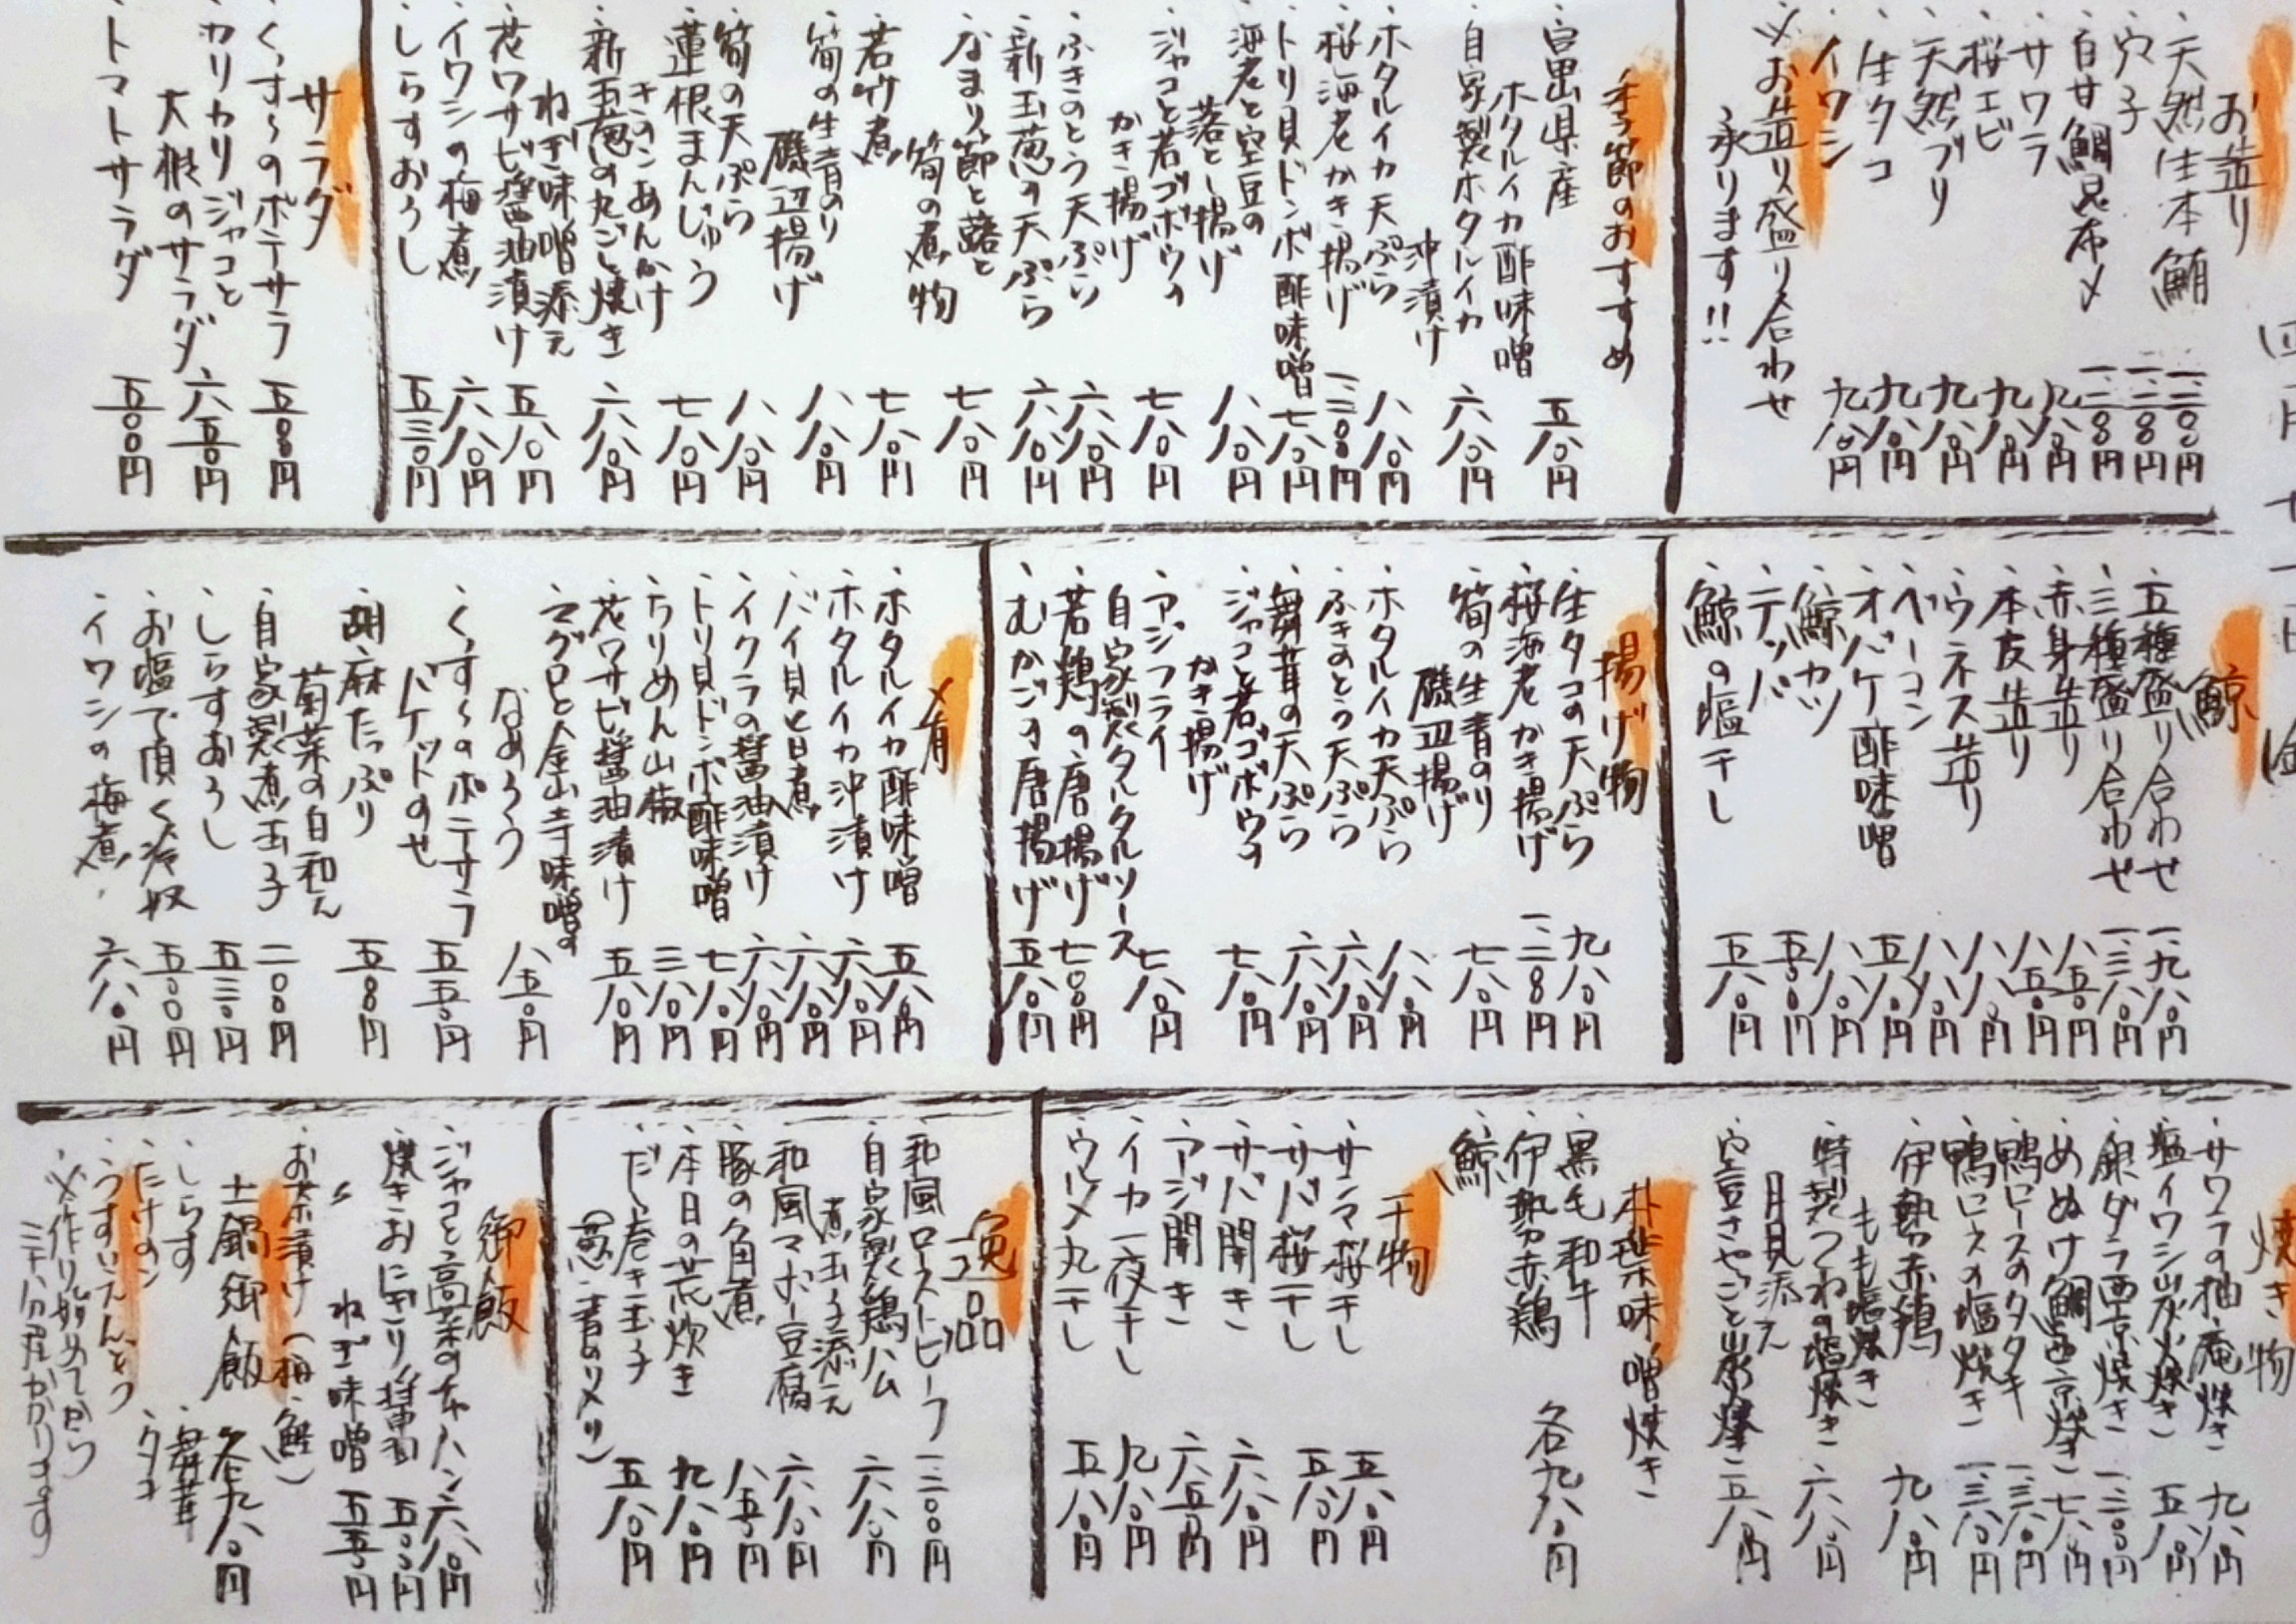 四月十一日 金
お造り
・天然生本鮪 一、三〇〇円
・穴子 一、二〇〇円
・白甘鯛昆布〆 一、二〇〇円
・サワラ 九八〇円
・桜エビ 九八〇円
・天然ブリ 九八〇円
・生タコ 九八〇円
・イワシ 九八〇円
※お造り盛り合わせ
承ります!!
季節のおすすめ
・富山県産
ホタルイカ酢味噌 五八〇円
・自家製ホタルイカ
沖漬け 六八〇円
・ホタルイカ天ぷら 八八〇円
・桜海老かき揚げ 一、二〇〇円
・トリ貝ドンボ酢味噌 七八〇円
・海老と空豆の
落とし揚げ 八八〇円
・ジャコと若ゴボウの
かき揚げ 七八〇円
・ふきのとう天ぷら 六八〇円
・新玉葱の天ぷら 六八〇円
・なまり節と蕗と
筍の煮物 七八〇円
・若竹煮 七八〇円
・筍の生青のり
磯辺揚げ 八八〇円
・筍の天ぷら 八八〇円
・蓮根まんじゅう
きのこあんかけ 七八〇円
・新玉葱の丸ごし焼き
ねぎ味噌添え 六八〇円
・花ワサビ醤油漬け 五八〇円
・イワシの梅煮 六八〇円
・しらすおろし 五三〇円
サラダ
・くっす〜のポテサラ 五〇〇円
・カリカリジャコと
大根のサラダ 六五〇円
・トマトサラダ 五〇〇円
鯨
・五種盛り合わせ 一、九八〇円
・三種盛り合わせ 一、三八〇円
・赤身造り 八五〇円
・本皮造り 八五〇円
・ウネス造り 八八〇円
・ベーコン 八八〇円
・オバケ酢味噌 五八〇円
・鯨カツ 八八〇円
・テッパ 五〇〇円
・鯨の塩干し 五八〇円
揚げ物
・生タコの天ぷら 九八〇円
・桜海老かき揚げ 一、二〇〇円
・筍の生青のり
磯辺揚げ 七八〇円
・ホタルイカ天ぷら 八八〇円
・ふきのとう天ぷら 六八〇円
・舞茸の天ぷら 六八〇円
・ジャコと若ゴボウの
かき揚げ 七八〇円
・アジフライ
自家製タルタルソース 七八〇円
・若鶏の唐揚げ 七〇〇円
・むかごの唐揚げ 五八〇円
〆肴
・ホタルイカ酢味噌 五八〇円
・ホタルイカ沖漬け 六八〇円
・バイ貝旨煮 六八〇円
・イクラの醤油漬け 六八〇円
・トリ貝ドンボ酢味噌 七八〇円
・ちりめん山椒 三八〇円
・花ワサビ醤油漬け 五八〇円
・マグロと金山寺味噌の
なめろう 八五〇円
・くっす〜のポテサラ
バケットのせ 五五〇円
・胡麻たっぷり
菊菜の白和え 五〇〇円
・自家製煮玉子 二〇〇円
・しらすおろし 五三〇円
・お塩で頂く冷奴 五〇〇円
・イワシの梅煮 六八〇円
焼き物
・サワラの柚庵焼き 九八〇円
・塩イワシ炭火焼き 五八〇円
・銀ダラ西京焼き 一、二〇〇円
・めぬけ鯛西京焼き 七八〇円
・鴨ロースのタタキ 一、三八〇円
・鴨ロースの塩焼き 一、三八〇円
・伊勢赤鶏
もも塩焼き 九八〇円
・特製つくねの塩焼き
月見添え 六八〇円
・空豆さやごと炭焼き 五八〇円
朴葉味噌焼き
・黒毛和牛
・伊勢赤鶏 各九八〇円
・鯨
干物
・サンマ桜干し 五八〇円
・サバ桜干し 五八〇円
・サバ開き 六八〇円
・アジ開き 六五〇円
・イカ一夜干し 九八〇円
・ウルメ丸干し 五八〇円
逸品
・和風ローストビーフ 一、二〇〇円
・自家製鶏ハム
煮玉子添え 六八〇円
・和風マボー豆腐 六八〇円
・豚の角煮 八五〇円
・本日の荒炊き 九八〇円
・だし巻き玉子 五八〇円
(葱・青のり入り)
御飯
・ジャコと高菜のチャーハン 六八〇円
・焼きおにぎり/醤油 五〇〇円
〃 ねぎ味噌 五五〇円
・お茶漬け(梅・鮭) 五五〇円
土鍋御飯 各九八〇円
・しらす ・舞茸
・たけのこ ・タコ
・うすいえんどう
※作り始めてから
三十分程かかります